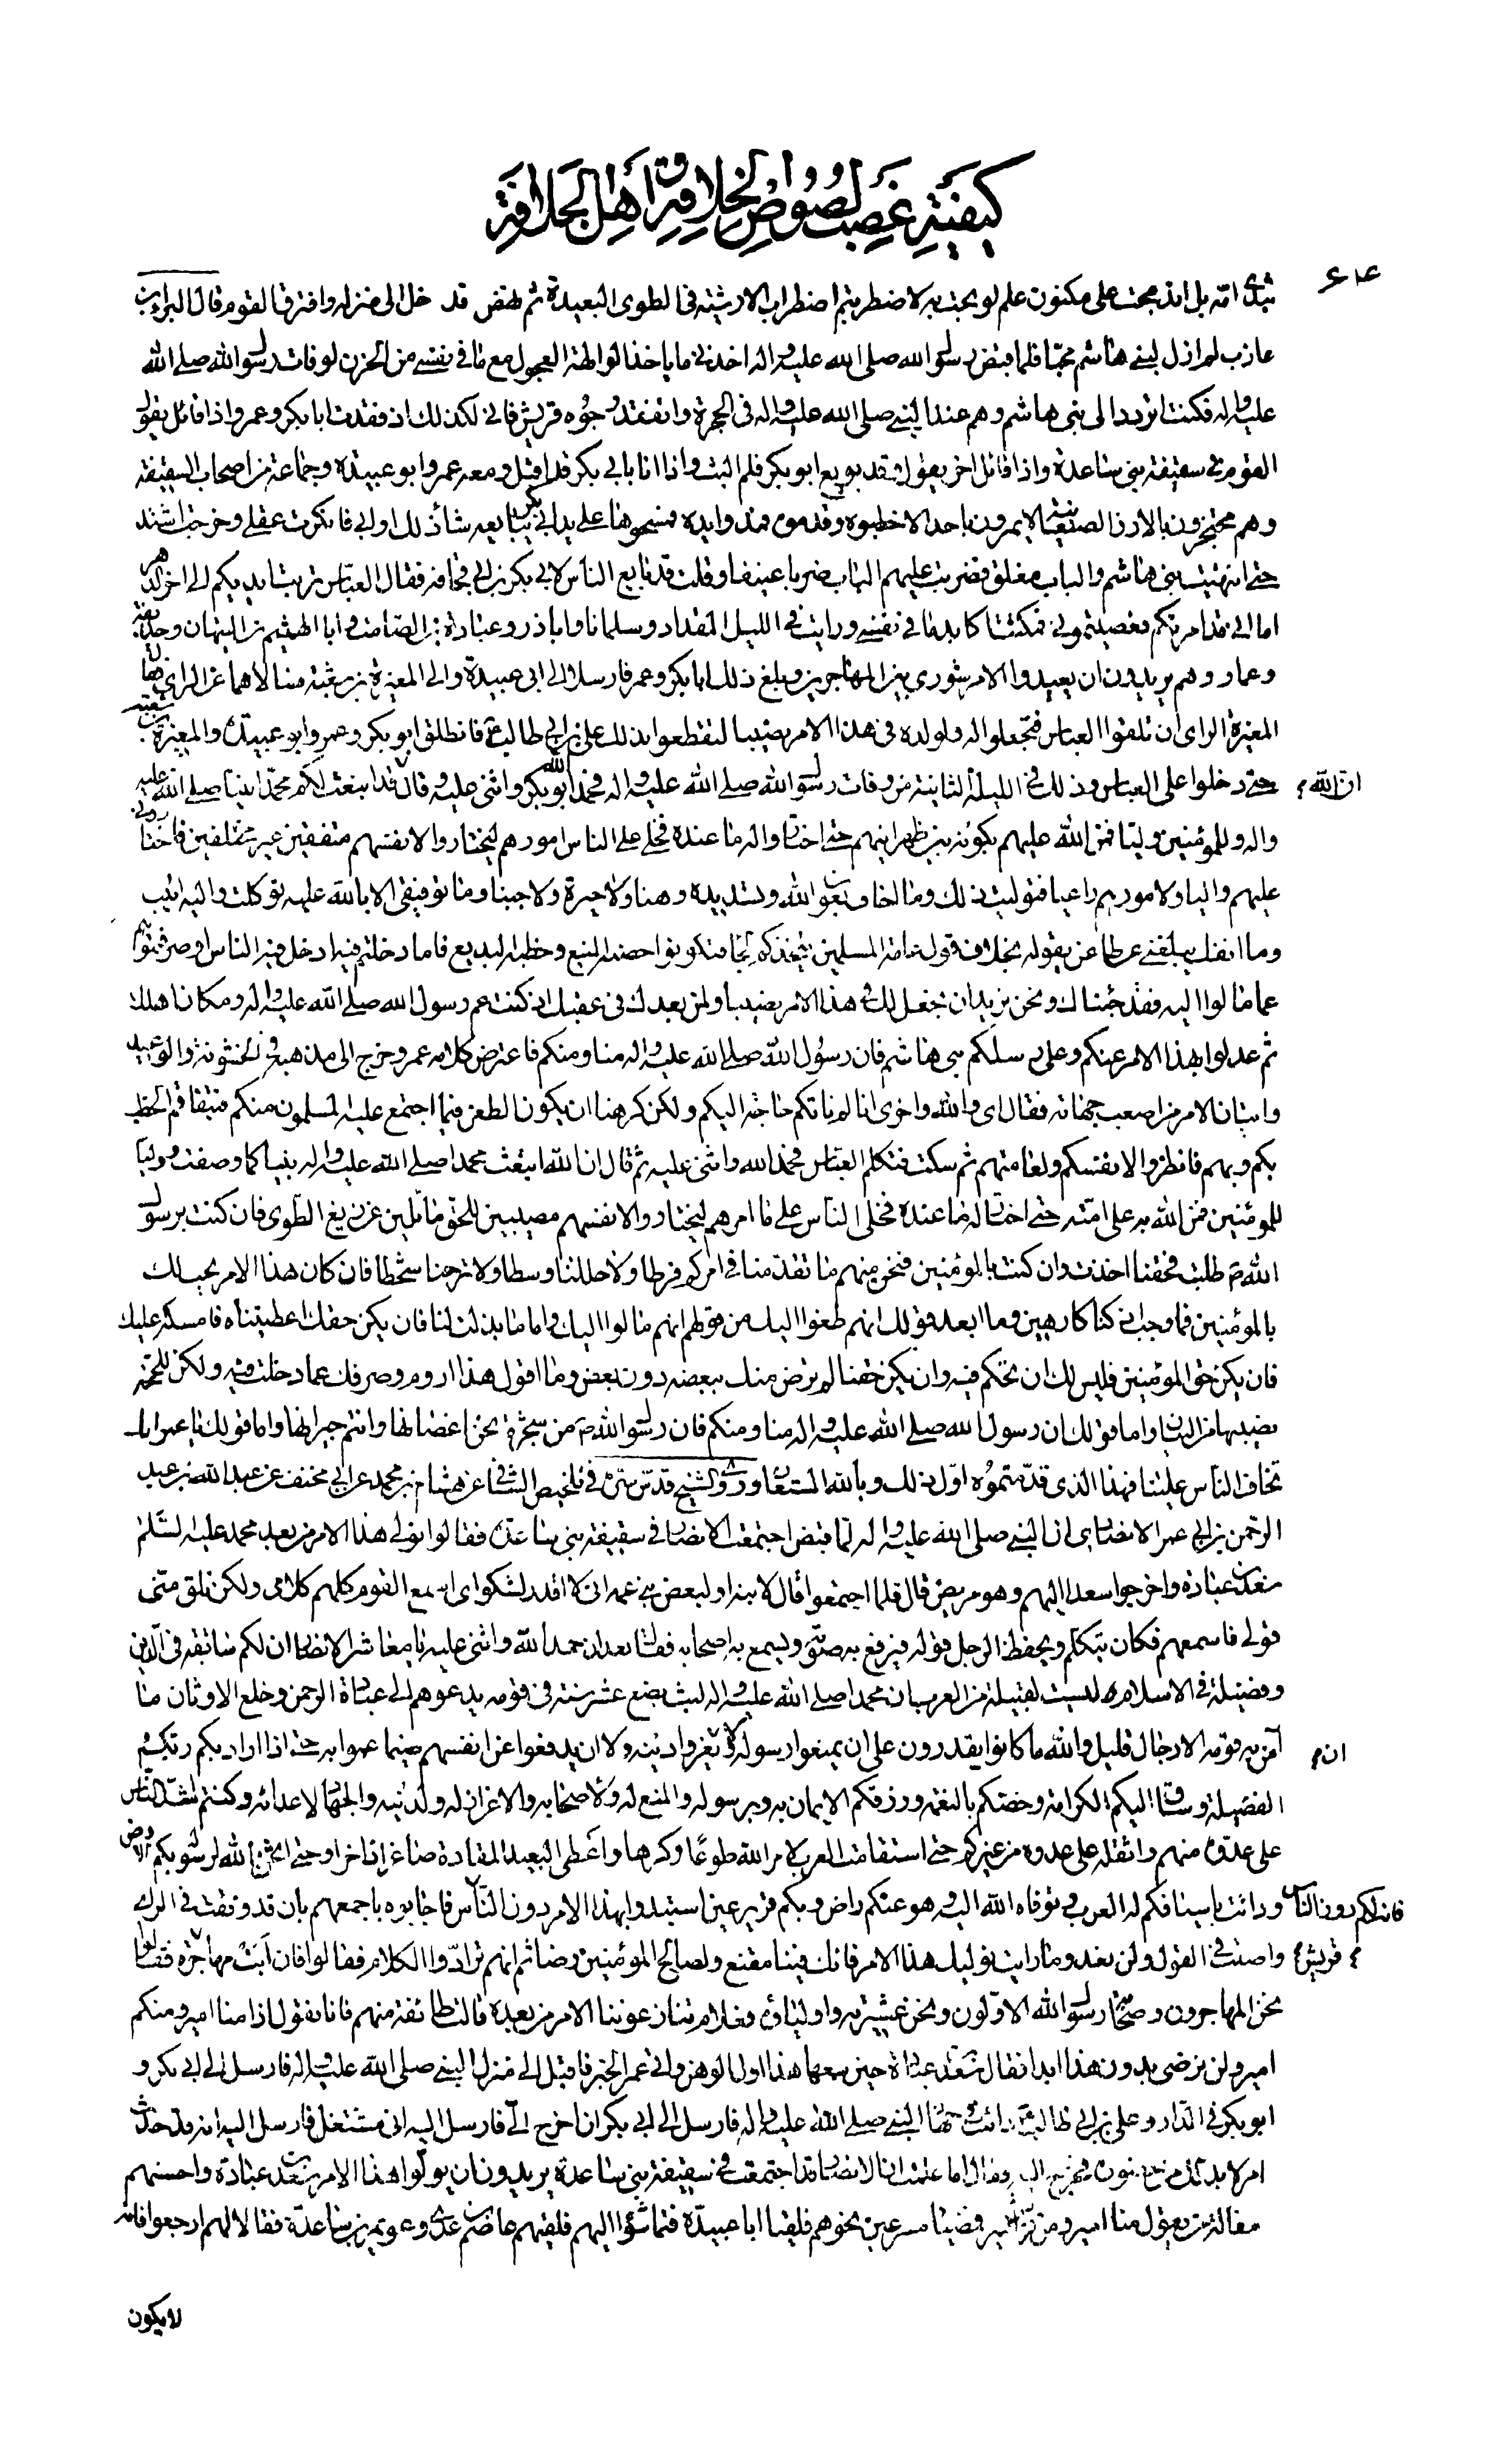 كيفية غصب لصوص الخلافة أهل الجلافة
بثدي امه بل اندمجت على مكنون علم لو بحت به لاضطربتم اضطراب الارشية في الطوى البعيدة ثم نهض قد خل الى منزله وافترق القوم وقال البراء بن
عازب لم ازل لبني هاشم محبا فلما قبض رسول الله صلى الله عليه واله اخذني ما ياخذ الوالهة العجول مع ما في نفسي من الحزن لوفات رسول الله صلى الله
عليه واله فكنت اتردد الى بني هاشم وهم عند النبي صلى الله عليه واله في الحجرة واتفقد وجوه قريش فاني لكذلك اذ فقدت ابا بكر وعمر واذا قائل يقول
القوم في سقيفة بني ساعدة واذا قائل اخر يقول قد بويع ابو بكر فلم البث واذا انا بابي بكر قد اقبل ومعه عمر وابو عبيدة وجماعة من اصحاب السقيفة
وهم محتجزون بالازر الصنعانية لا يمرون باحد الا خبطوه وقدموه فمدوا يده فمسحوها على يد ابي بكر يبايعه شاء ذلك او ابى فانكرت عقلي وخرجت اشتد
حتى انتهيت بني هاشم والباب مغلق فضربت عليهم الباب ضربا عنيفا وقلت قد بايع الناس لابي بكر بن ابي قحافة فقال العباس تربت ايديكم الى اخر الدهر
اما اني قد امرتكم فعصيتموني فمكثت اكابد ما في نفسي ورايت في الليل المقداد وسلمان وابا ذر وعبادة بن الصامت وابا الهيثم بن التيهان وحذيفة
وعمار وهم يريدون ان يعيدوا الامر شورى بين المهاجرين وبلغ ذلك ابا بكر وعمر فارسلا الى ابي عبيدة والى المغيرة بن شعبة فسالاهما عن الراي فقال
المغيرة الراى ان تلقوا العباس فتجعلوا له ولولده في هذا الامر نصيبا لتقطعوا بذلك علي بن ابي طالب ع فانطلق ابو بكر وعمر وابو عبيدة والمغيرة بن شعبة
حتى دخلوا على العباس وذلك في الليلة الثانية من وفات رسول الله صلى الله عليه واله فحمد ابو بكر الله واثنى عليه وقال قد ابتعث لكم محمدا نبيا صلى الله عليه
ان الله
واله وللمؤمنين وليا فمن الله عليهم بكونه بين ظهرانيهم حتى اختار له ما عنده فخلى على الناس امورهم ليختاروا لانفسهم متفقين غير مختلفين فاختاروني
عليهم واليا ولامورهم راعيا فتوليت ذلك وما اخاف بعون الله وتسديده وهنا ولا حيرة ولا جبنا وما توفيقي الا بالله عليه توكلت واليه انيب
وما انفك يبلغني عن طاعن يقول بخلاف قول عامة المسلمين يتخذكم لجا فتكونوا حصنه المنيع وخطبه البديع فاما دخلتم فيما دخل فيه الناس او صرفتموهم
عما مالوا اليه فقد جئناك ونحن نريد ان نجعل لك في هذا الامر نصيبا ولمن بعدك في عقبك اذ كنت عم رسول الله صلى الله عليه واله ومكان اهلك
ثم عدلوا بهذا الامر عنكم وعلى رسلكم بني هاشم فان رسول الله صلى الله عليه واله منا ومنكم فاعترض كلامه عمر وخرج الى مذهبه في الخشونة والوعيد
واتيان الامر من اصعب جهاته فقال اى والله واخرى انا لم ناتكم حاجة اليكم ولكن كرهنا ان يكون الطعن فيما اجتمع عليه المسلمون منكم فيتفاقم الخطب
بكم وبهم فانظروا لانفسكم ولعامتهم ثم سكت فتكلم العباس فحمد الله واثنى عليه ثم قال ان الله ابتعث محمدا صلى الله عليه واله نبيا كما وصفت ووليا
للمؤمنين فمن الله به على امته حتى اختار له ما عنده فخلى الناس على امرهم ليختاروا لانفسهم مصيبين للحق مائلين عن زيغ الهوى فان كنت برسول
الله ص طلبت فحقنا اخذت وان كنت بالمؤمنين فنحن منهم ما تقدمنا في امركم فرطا ولا حللنا وسطا ولا نزحنا شحطا فان كان هذا الامر يجب لك
بالمؤمنين فما وجب اذ كنا كارهين وما ابعد قولك انهم طعنوا اليك من قولهم انهم مالوا اليك واما ما بذلت لنا فان يكن حقك اعطيتناه فامسكه عليك
فان يكن حق المؤمنين فليس لك ان تحكم فيه وان يكن حقنا لم نرض منك ببعضه دون بعض وما اقول هذا اروم صرفك عما دخلت فيه ولكن للحجة
نصيبها من البيان واما قولك ان رسول الله صلى الله عليه واله منا ومنكم فان رسول الله ص من شجرة نحن اغصانها وانتم جيرانها واما قولك يا عمر انك
تخاف الناس علينا فهذا الذي قدمتموه اول ذلك وبالله المستعان وروى الشيخ قدس سره في تلخيص الشافي عن هشام بن محمد عن ابي مخنف عن عبد الله بن عبد
الرحمن بن ابي عمر الانصاري ان النبي صلى الله عليه واله لما قبض اجتمعت الانصار في سقيفة بني ساعدة فقالوا نولي هذا الامر من بعد محمد عليه السلم
سعد بن عبادة واخرجوا سعدا اليهم وهو مريض قال فلما اجتمعوا قال لابنه او لبعض بني عمه اني لا اقدر لشكواي اسمع القوم كلهم كلامي ولكن تلق مني
قولي فاسمعهم فكان يتكلم ويحفظ الرجل قوله فيرفع به صوته ويسمع به اصحابه فقال بعد ان حمد الله واثنى عليه يا معاشر الانصار ان لكم سابقة في الدين
وفضيلة في الاسلام ليست لقبيلة من العرب ان محمدا صلى الله عليه واله لبث بضع عشر سنة في قومه يدعوهم الى عبادة الرحمن وخلع الاوثان ما
آمن به قومه الا رجال قليل والله ما كانوا يقدرون على ان يمنعوا رسوله ولا يعزوا دينه ولا ان يدفعوا عن انفسهم ضيما عموا به حتى اذا اراد بكم ربكم
ان
الفضيلة وساق اليكم الكرامة وخصكم بالنعمة ورزقكم الايمان به وبرسوله والمنع له ولاصحابه والاعزاز له ولدينه والجهاد لاعدائه وكنتم اشد الناس
على عدوه منهم واثقله على عدوه من غيركم حتى استقامت العرب لامر الله طوعا وكرها واعطى البعيد المقادة صاغرا داخرا وحتى اثخن الله لرسوله بكم الارض
ودانت باسيافكم له العرب وتوفاه الله اليه وهو عنكم راض وبكم قرير عين استبدوا بهذا الامر دون الناس فاجابوه باجمعهم بان قد وفقت في الراى
فانه لكم دون الناس
واصبت في القول ولن نعدو ما رايت نوليك هذا الامر فانك فينا مقنع ولصالح المؤمنين رضا ثم انهم ترادوا الكلام فقالوا فان ابت مهاجرة فقالوا
قريش
نحن المهاجرون وصحابة رسول الله الاولون ونحن عشيرته واولياؤه فعلام تنازعوننا الامر من بعده قالت طائفة منهم فانا نقول اذا منا امير ومنكم
امير ولن نرضى بدون هذا ابدا فقال سعد بن عبادة حين سمعها هذا اول الوهن واتى عمر الخبر فاقبل الى منزل النبي صلى الله عليه واله فارسل الى ابي بكر و
ابو بكر في الدار وعلي بن ابي طالب ع دائب في جهاز النبي صلى الله عليه واله فارسل الى ابي بكر ان اخرج الي فارسل اليه اني مشتغل فارسل اليه انه قد حدث
امر لا بد لك من حضوره فخرج اليه وقال اما علمت ان الانصار قد اجتمعت في سقيفة بني ساعدة يريدون ان يولوا هذا الامر سعد بن عبادة واحسنهم
مقالة من يقول منا امير ومن قريش امير فمضيا مسرعين نحوهم فلقيا ابا عبيدة فتماشوا اليهم فلقيهم عاصم بن عدي وعويم بن ساعدة فقالا لهم ارجعوا فانه
لا يكون